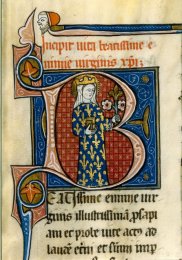 Incipit uita beatissime e
nimie uirginis xp̄i
B
EATISSime enimie uir
ginis illustrissimā p̄sapi
am et p̄bole uite actꝰ ad
laudē etn̄i et sūmi